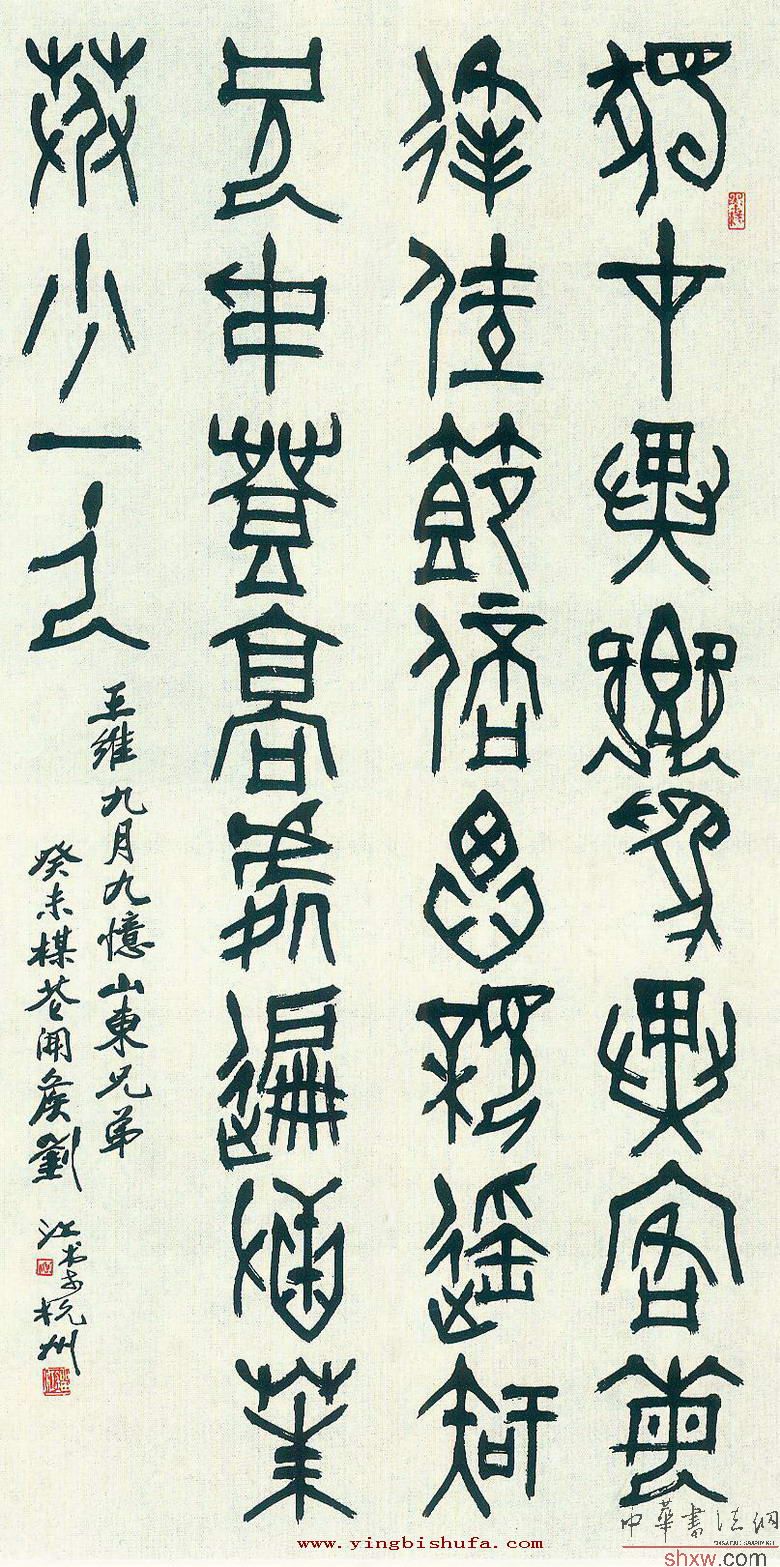 獨在異鄉爲異客每
逢佳節倍思親遙知
兄弟登高處遍插茱
萸少一人
王維九月九憶山東兄弟
癸未楳花開候劉江書于杭州
www.yingbishufa.com
中華書法網
shxw.com